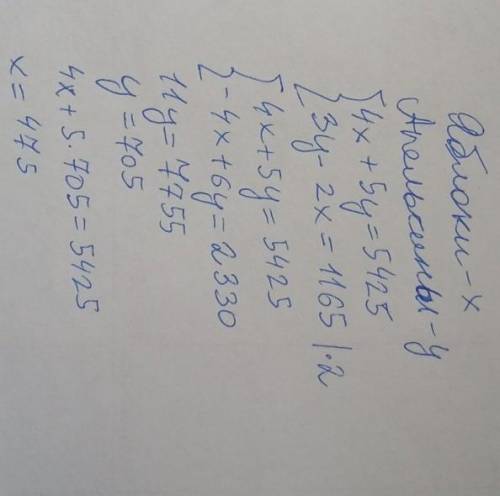 Яблоки - x
Апельсины - y
{ 4x + 5y = 5425
{ 3y - 2x = 1165 | · 2
{ 4x + 5y = 5425
{ - 4x + 6y = 2330
11y = 7755
y = 705
4x + 5 · 705 = 5425
x = 475